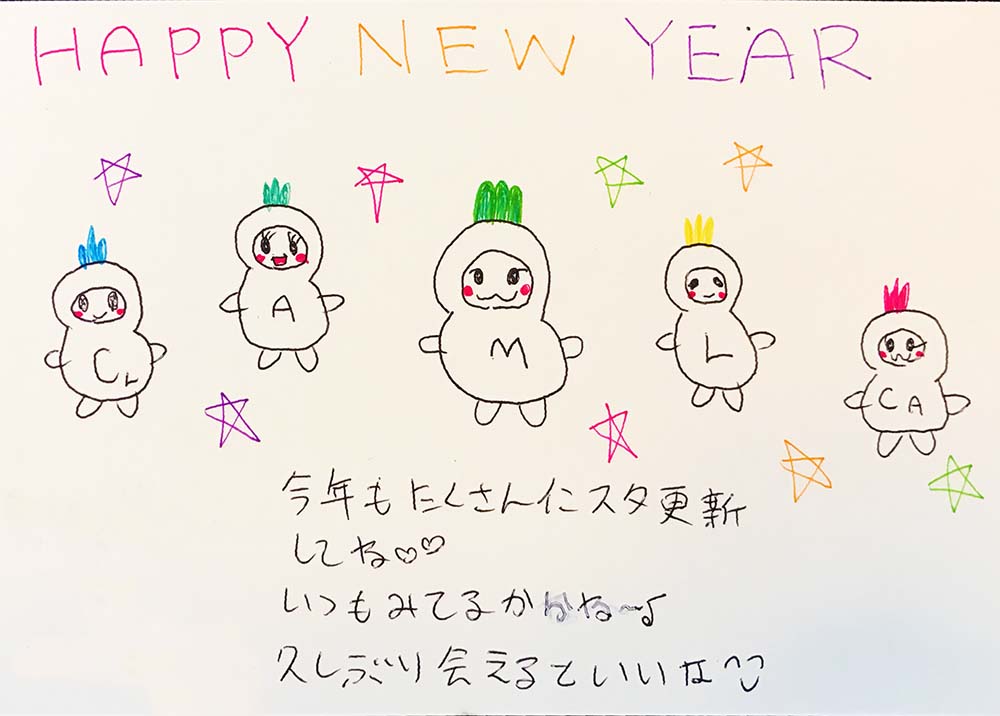 HAPPY NEW YEAR
A
M
L
CL
CA
今年もたくさんインスタ更新
してね♡♡
いつもみてるか ね〜♪
久しぶり会えるといいな